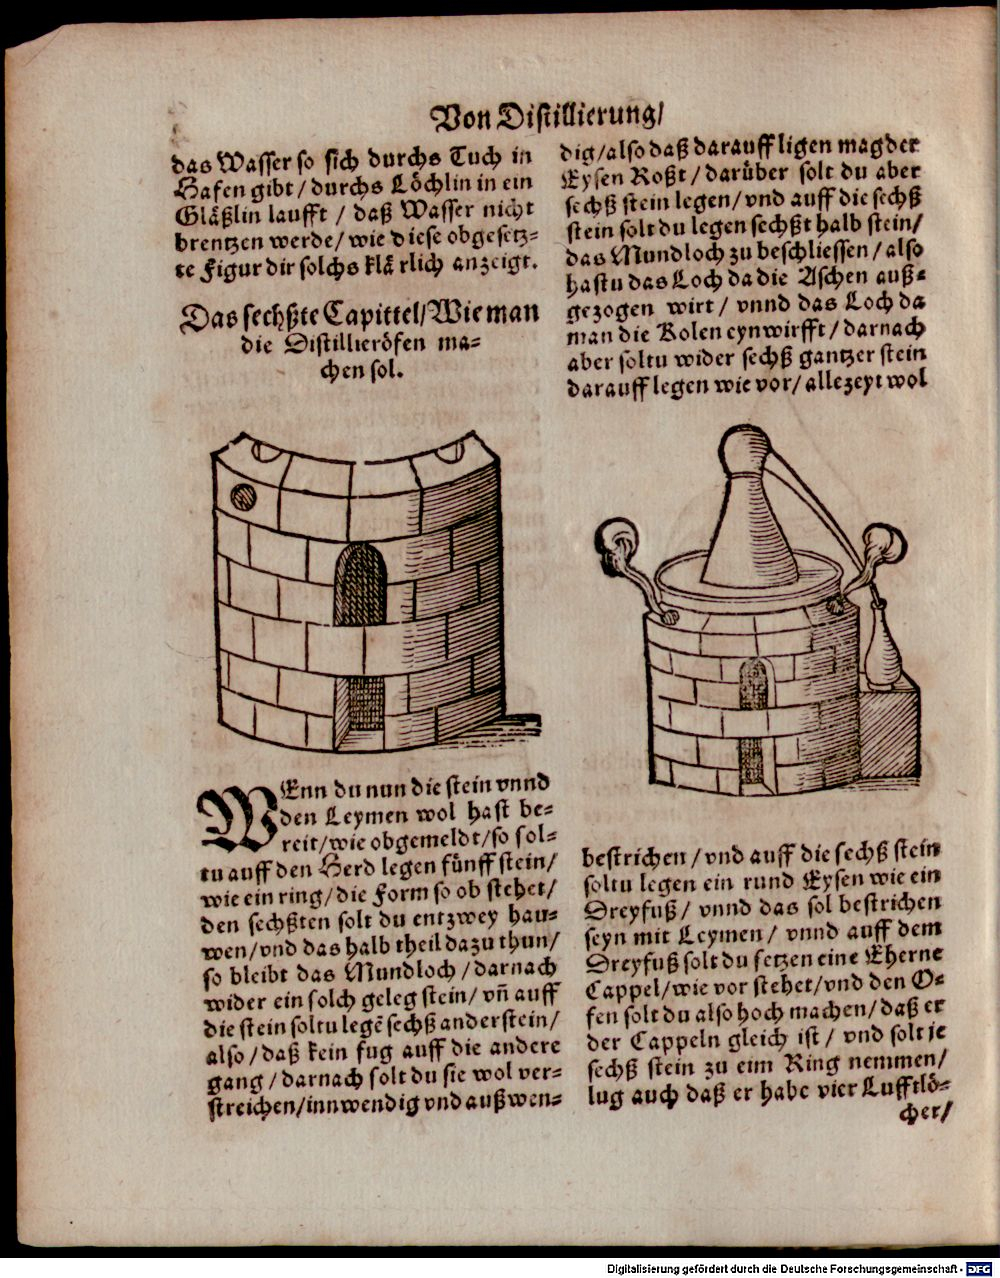 Von Distillierung/
das Wasser so sich durchs Tuch in
Hafen gibt / durchs Löchlin in ein
Gläßlin laufft / daß Wasser nicht
brentzen werde/ wie diese obgesetz=
te Figur dir solchs klärlich anzeigt.
Das sechßte Capittel/ Wie man
die Distillieröfen ma=
chen sol.
WEnn du nun die stein vnnd
den Leymen wol hast be=
reit/ wie obgemeldt/ so sol=
tu auff den Herd legen fünff stein/
wie ein ring/ die Form so ob stehet/
den sechßten solt du entzwey hau=
wen/ vnd das halb theil dazu thun/
so bleibt das Mundloch / darnach
wider ein solch geleg stein/ vñ auff
die stein soltu legẽ sechß ander stein/
also / daß kein fug auff die andere
gang / darnach solt du sie wol ver=
streichen/ innwendig vnd außwen=
dig/ also daß darauff ligen mag der
Eysen Roßt / darüber solt du aber
sechß stein legen/ vnd auff die sechß
stein solt du legen sechßt halb stein/
das Mundloch zu beschliessen / also
hastu das Loch da die Aschen auß=
gezogen wirt / vnnd das Loch da
man die Kolen eynwirfft / darnach
aber soltu wider sechß gantzer stein
darauff legen wie vor/ allezeyt wol
bestrichen / vnd auff die sechß stein
soltu legen ein rund Eysen wie ein
Dreyfuß / vnnd das sol bestrichen
seyn mit Leymen / vnnd auff dem
Dreyfuß solt du setzen eine Eherne
Cappel/ wie vor stehet/ vnd den O=
fen solt du also hoch machen/ daß er
der Cappeln gleich ist / vnd solt je
sechß stein zu eim Ring nemmen/
lug auch daß er habe vier Lufftlö=
cher/
Digitalisierung gefördert durch die Deutsche Forschungsgemeinschaft - DFG